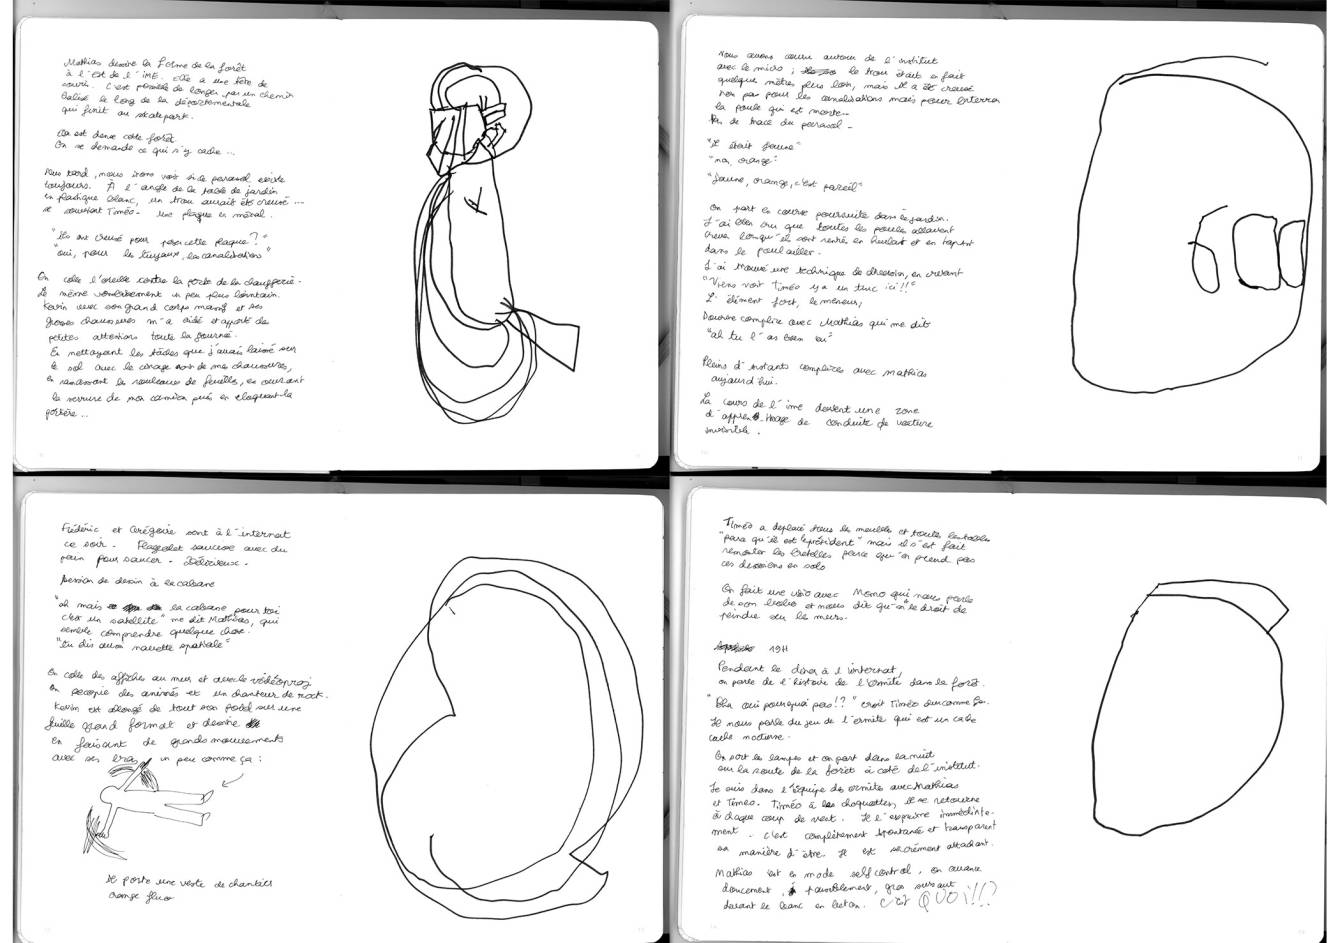 Mathias dessine la forme de la forêt
à l'est de l'IME. Elle a une tête de
souris. C'est possible de longer par un chemin
balisé le long de la départementale
qui finit au skatepark.
Ca est dense cette forêt.
On se demande ce qui s'y cache ...
Plus tard, nous irons voir si le parasol existe
toujours. À l'angle de la table de jardin
en plastique blanc, un trou aurait été creusé ...
se souvient Timéo. Une plaque en métal.
"Ils ont creusé pour poser cette plaque ?"
"oui, pour les tuyaux, les canalisations"
On colle l'oreille contre la porte de la chaufferie.
Le même vombrement un peu plus lointain.
Kevin avec son grand corps massif et ses
grosses chaussures m'a aidé et apporté des
petites attentions toute la journée.
En nettoyant les tâches que j'avais laissé sur
le sol avec le cirage noir de mes chaussures,
en ramassant les rouleaux de feuilles, en ouvrant
la serrure de mon camion puis en éloquant la
portière ...
Nous avons couru autour de l'institut
avec le micro ; le trou était en fait
quelques mètres plus loin, mais il a été creusé
non pas pour les canalisations mais pour enterrer
la poule qui est morte...
Pas de trace du parasol -
"Il était jaune"
"non, orange"
"Jaune, orange, c'est pareil"
On part en course poursuite dans le jardin.
J'ai bien cru que toutes les poules allaient
crever lorsqu'ils sont rentrés en hurlant et en tapant
dans le poulailler.
J'ai trouvé une technique de diversion, en criant
"Viens voir Timéo y'a un truc ici !!"
L'élément fort, le meneur,
complice avec Mathias qui me dit
"ah tu l'as bien eu"
Pleins d'instants complices avec Mathias
aujourd'hui.
La cour de l'ime devient une zone
d'apprentissage de conduite de voiture
invisible.
Frédéric et Grégoire sont à l'internat
ce soir. Flageolet saucisse avec du
pain pour saucer. Délicieux.
Session de dessin à la cabane
"ah mais la cabane pour toi
c'est un satellite" me dit Mathias, qui
semble comprendre quelque chose.
"tu dis aussi navette spatiale"
On colle des affiches au mur et avec le vidéoproj
on recopie des animés et un chanteur de rock.
Kevin est allongé de tout son poids sur une
feuille grand format et dessine
en faisant de grands mouvements
avec ses bras un peu comme ça :
Il porte une veste de chantier
orange fluo
Timéo a déplacé tous les meubles et toutes les tables
"parce qu'il est le président" mais il s'est fait
remonter les bretelles parce qu'on prend pas
ces décisions en solo
On fait une visio avec Momo qui nous parle
de son boulot et nous dit qu'on a le droit de
peindre sur les murs.
19H
Pendant le dîner à l'internat,
on parle de l'histoire de l'ermite dans la forêt.
"Bha oui pourquoi pas !?" croit Timéo dur comme fer.
Il nous parle du jeu de l'ermite qui est un cache
cache nocturne.
On sort les lampes et on part dans la nuit
sur la route de la forêt à côté de l'institut.
Je suis dans l'équipe des ermites avec Mathias
et Timéo. Timéo a les chocottes, il se retourne
à chaque coup de vent. Il l'exprime immédiate-
ment. C'est complètement spontané et transparent
sa manière d'être. Il est sacrément attachant.
Mathias est en mode self control, on avance
doucement, paisiblement, gros sursaut
devant le banc en béton. C'EST QUOI !!!?